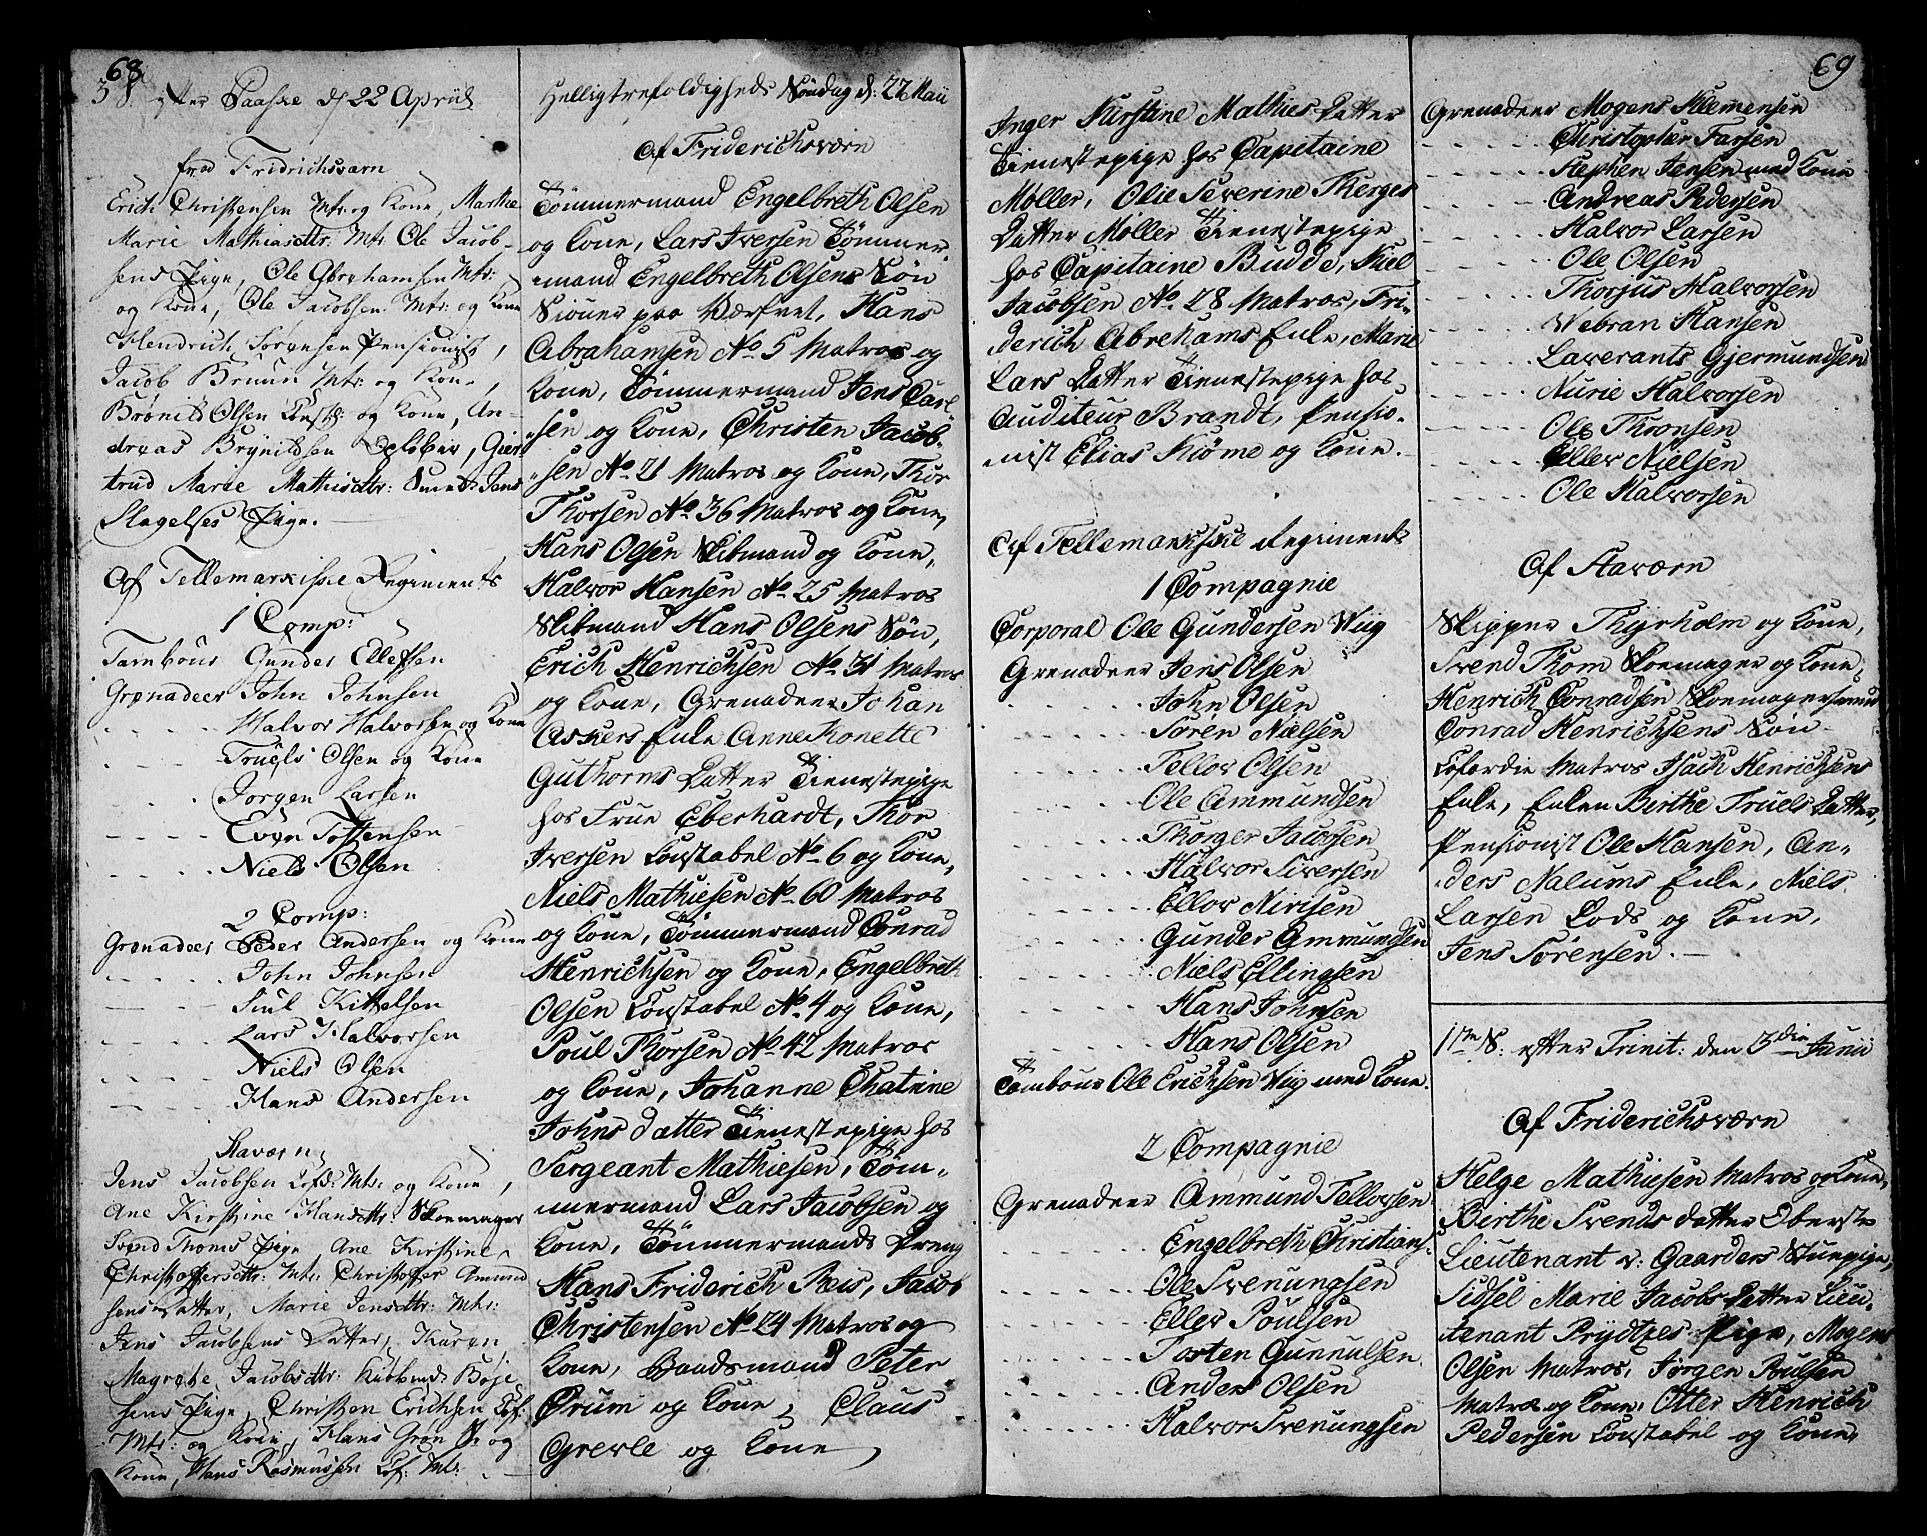 68
3 S. efter Paaske d 22 April
fra Fridrichsværn
Erich Christensen Mtr. og Kone, Marthe
Marie Mathiasdttr. Mtr. Ole Jacob-
sens Pige, Ole Abrahamsen Mtr.
og Kone, Ole Jacobsen Mtr. og Kone
Hendrich Sørensen Pensionist,
Jacob Bruun Mtr. og Kone,
Brønild Olsen og Kone, An-
dreas Brynildsen, Gier-
trud Marie Mathisdttr: Smed Jens
Slagelses Pige.
Af Tellemarkiske Regiments
1 Comp:
Tambour Gunder Ellefsen
Grenadeer John Johnsen
Halvor Halvorsen og Kone
Truels Olsen og Kone
Jørgen Larsen
Even Tostensen
Niels Olsen
2 Comp:
Grenadeer Peder Andersen og Kone
John Johnsen
Juul Kittelsen
Lars Halvorsen
Niels Olsen
Hans Andersen
Staværn
Jens Jacobsen Cofd: Mtr. og Kone,
Ane Kirstine Hansdttr: Skoemager
Svend Thoms Pige, Ane Kirstine
Christoffersdttr: Mtr: Christoffer Amund
sens Datter, Marie Jensdttr: Mtr:
Jens Jacobsens Datter, Karen
Magrethe Jacobsdttr: Boje
sens Pige, Christen Erichsen Cof:
Mtr: og Kone, Hans Grøn S. og
Kone, Hans Rasmussen Cof: Mtr:
Helligtrefoldigheds Søndag d: 27 Maii
Af Friderichsværn
Tömmermand Engelbreth Olsen
og Kone, Lars Iversen Tömmer-
mand Engelbreth Olsens Søn
Siouer paa Værfvet, Hans
Abrahamsen No 5 Matros og
Kone, Tömmermand Jens Carl-
sen og Kone, Christen Jacob-
sen No 21 Matros og Kone, Thor
Thorsen No 36 Matros og Kone,
Hans Olsen Skibmand og Kone,
Halvor Hansen No 25 Matros
Skibmand Hans Olsens Søn,
Erich Henrichsen No 31 Matros
og Kone, Grenadeer Johan
Askers Enke Anne Konette
Guthorms Datter Tienestepige
hos Frue Eberhardt, Thor
Iversen Constabel No 6 og Kone,
Niels Mathiesen No 60 Matros
og Kone, Tömmermand Conrad
Henrichsen og Kone, Engelbreth
Olsen Constabel No 4 og Kone,
Poul Thorsen No 42 Matros
og Kone, Johanne Chatrine
Johns datter Tienestepige hos
Sergeant Mathiesen, Töm-
mermand Lars Jacobsen og
Kone, Tömmermands Dreng
Hans Friderich Reis, Jacob
Christensen No 24 Matros og
Kone, Baadsmand Peter
Ørum og Kone, Claus
Grevle og Kone,
69
Inger Kirstine Mathies Datter
Tienestepige hos Capitaine
Møller, Olie Severine Therges
Datter Møller Tienestepige
hos Capitaine Budde, Niel
Jacobsen No 28 Matros, Fri-
derich Abrehams Enke, Marie
Lars Datter Tienestepige hos
Auditeur Brandt, Pensio-
nist Elias Kiøme og Kone.
Af Tellemarkske Regiments
1 Compagnie
Corporal Ole Gundersen Wiig
Grenadeer Jens Olsen
John Olsen
Søren Nielsen
Tellov Olsen
Ole Ammundsen
Thorger Jacobsen
Halvor Siversen
Ellov Nirisen
Gunder Ammundsen
Niels Ellingsen
Hans Johnsen
Hans Olsen
Tambour Ole Erichsen Wiig med Kone.
2 Compagnie
Grenadeer Ammund Tellovsen
Engelbreth Christians.
Ole Svenungsen
Ellev Poulsen
Tosten Gunnulsen
Anders Olsen
Halvor Svenungsen
Grenadeer Mogens Klemensen
Christopher Farsen
Stephen Jensen med Kone
Andreas Pedersen
Halvor Larsen
Ole Olsen
Thorjus Halvorsen
Vebran Hansen
Laverants Gjermundsen
Nurie Halvorsen
Ole Thronsen
Ellev Nielsen
Ole Halvorsen
Af Staværn
Skipper Thyrholm og Kone,
Svend Thom Skoemager og Kone,
Henrich Conradsen Skoemagersvend
Conrad Henrichsens Søn
Cofardie Matros Isach Henrichsens
Enke, Enken Birthe Truels Datter,
Pensionist Ole Hansen, An-
ders Nalums Enke, Niels
Larsen Lods og Kone,
Jens Sørensen.
1ste S. efter Trinit: den 3die Junii
Af Friderichsværn
Helge Mathiesen Matros og Kone,
Birthe Svends datter Oberste
Lieutenant v: Gaarders Stuepige,
Sidsel Marie Jacobs Datter Lieu-
tenant Prydtzes Pige, Mogens
Olsen Matros, Jørgen Poulsen
Matros og Kone, Otter Henrich
Pedersen Constabel og Kone,